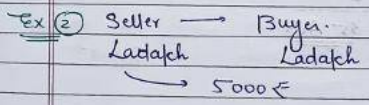 Ex ② Seller → Buyer.
Ladakh Ladakh
→ 5000 ₹